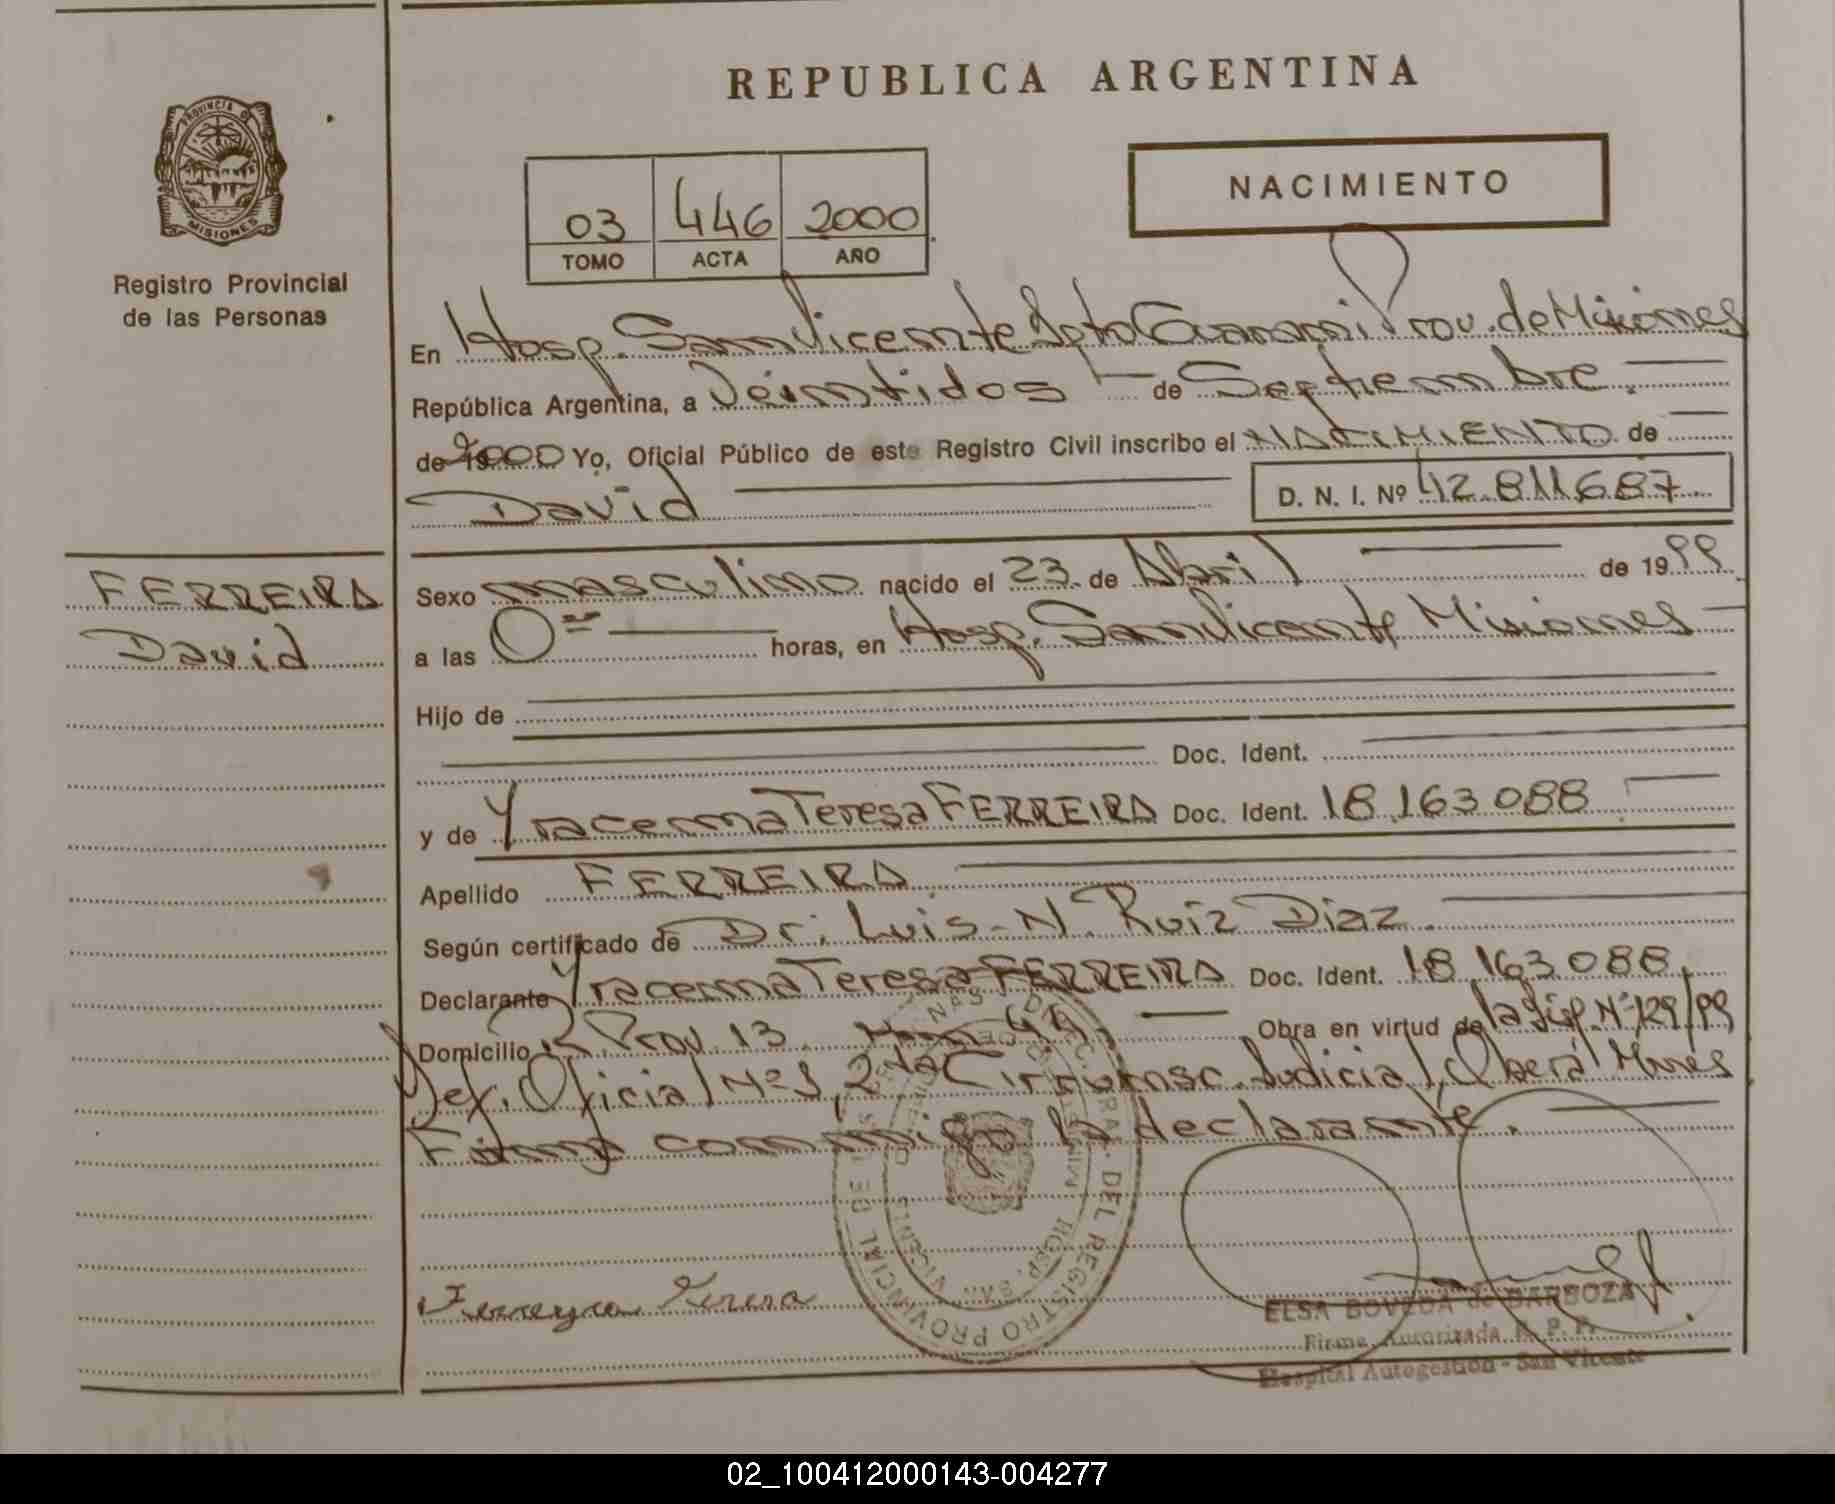 REPUBLICA ARGENTINA
PROVINCIA DE
MISIONES
Registro Provincial
de las Personas
NACIMIENTO
03 446 2000
TOMO ACTA AÑO
En Hosp. San Vicente Dpto Guaraní Prov. de Misiones
República Argentina, a Veintidos de Septiembre.
de 19 2000 Yo, Oficial Público de este Registro Civil inscribo el NACIMIENTO de
David
D. N. I. Nº 42.811.687
FERREIRA
David
Sexo masculino nacido el 23 de Abril de 1999
a las 0 horas, en Hosp. San Vicente Misiones
Hijo de
Doc. Ident.
y de Yracema Teresa FERREIRA Doc. Ident. 18.163.088
Apellido FERREIRA
Según certificado de Dr. Luis N. Ruiz Diaz.
Declarante Yracema Teresa FERREIRA Doc. Ident. 18.163.088.
Domicilio R. Prov. 13 Km 49. Obra en virtud de la Disp. Nº 129/99
Def. Oficial Nº 1, 2da Circunsc. Judicial, Oberá Mnes
Firma conmigo la declarante.
DEL REGISTRO PROVINCIAL DE
HOSP. SAN VICENTE
Ferreyra Teresa
ELSA BOVEDA de BARBOZA
Firma Autorizada R. P. P.
Hospital Autogestión - San Vicente
02_100412000143-004277